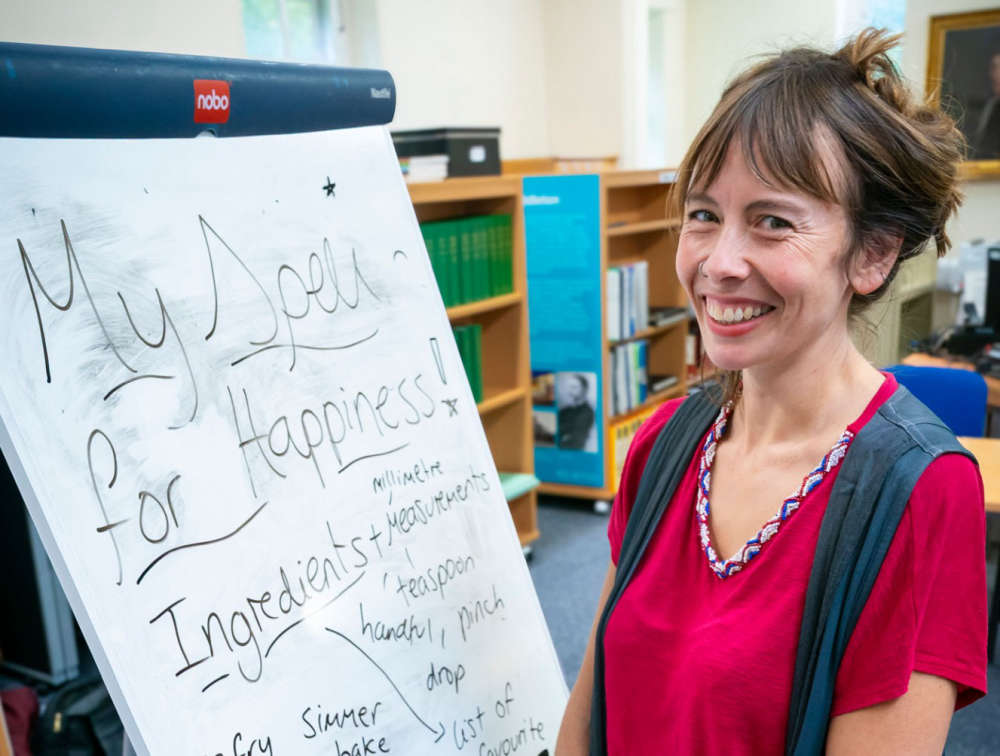 nobo
My Spell
for Happiness!
Ingredients + Measurements
millimetre
teaspoon
handful, pinch
drop
simmer
fry
bake
list of
favourite